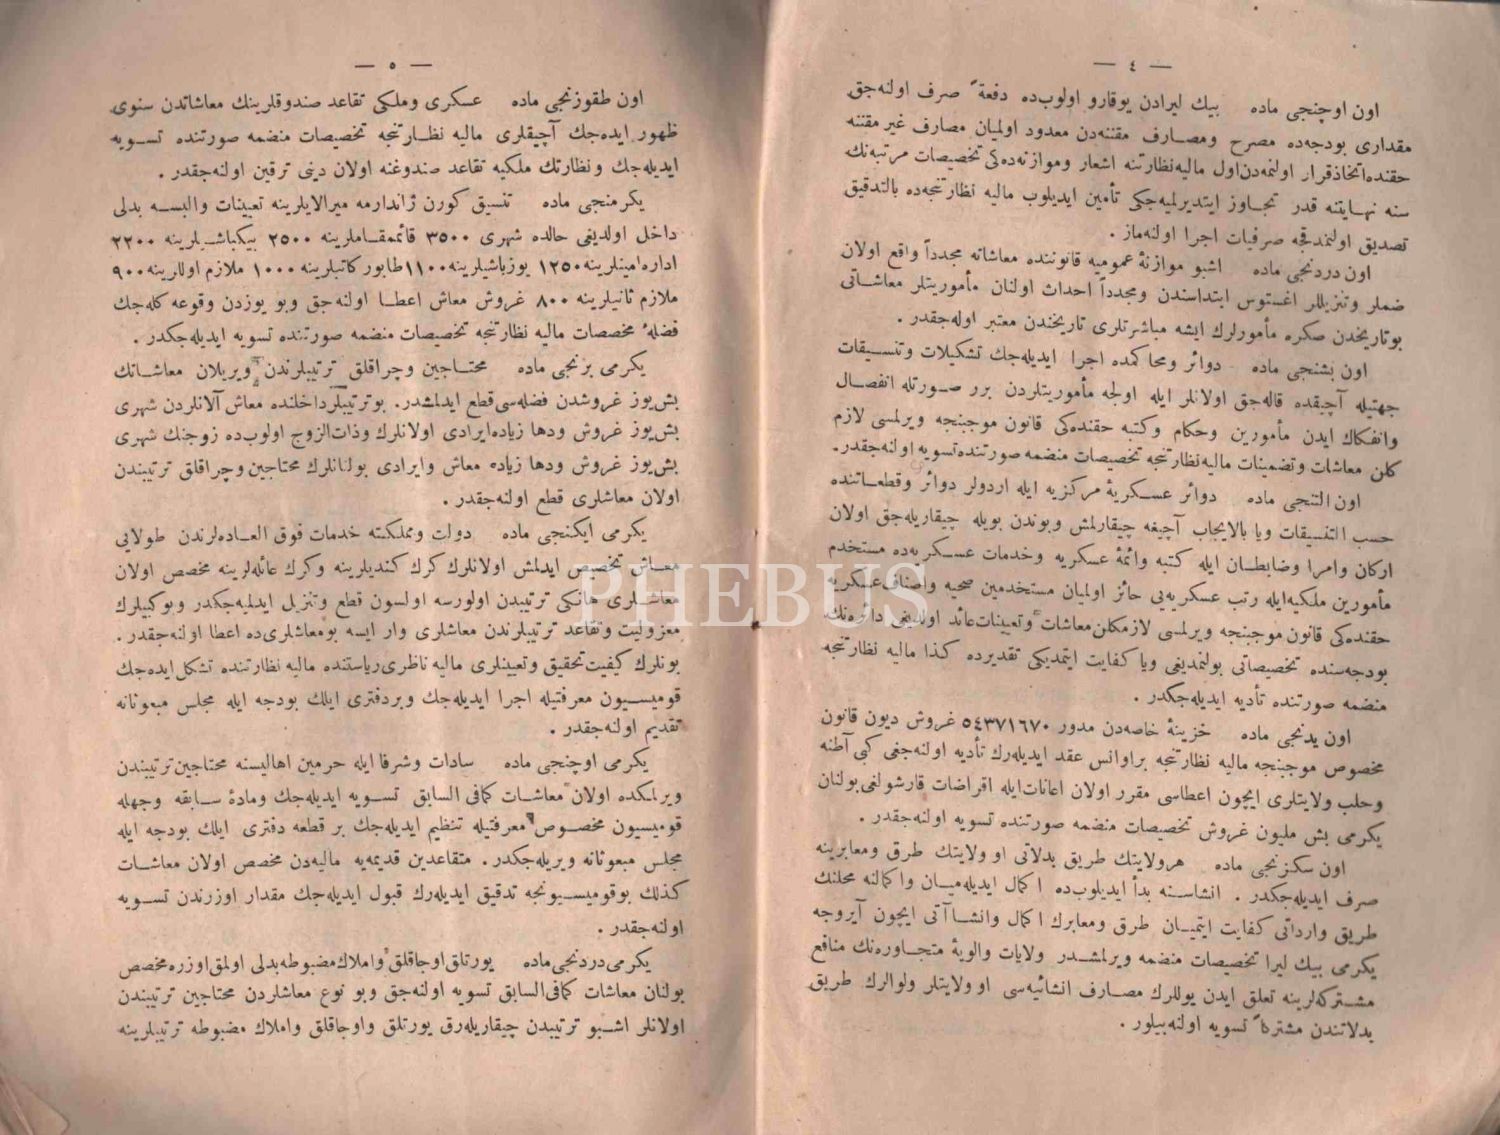 — ٤ —
اون اوچنجی ماده بیك لیرادن یوقارو اولوب‌ده دفعةً صرف اولنه‌جق
مقداری بودجه‌ده مصرح ومصارف مقننه‌دن معدود اولمیان مصارف غیر مقننه
حقنده اتخاذ قرار اولنمه‌دن اول مالیه نظارتنه اشعار وموازنه‌ده‌کی تخصیصات مرتبه‌نك
سنه نهایتنه قدر تجاوز ایتدیرلمیه‌جکی تأمین ایدیلوب مالیه نظارتنجه‌ده بالتدقیق
تصدیق اولنمدقجه صرفیات اجرا اولنه‌ماز .
اون دردنجی ماده اشبو موازنهٔ عمومیه قانوننده معاشاته مجدداً واقع اولان
ضملر وتنزیللر اغستوس ابتداسندن ومجدداً احداث اولنان مأموریتلر معاشاتی
بوتاریخدن صکره مأمورلرك ایشه مباشرتلری تاریخندن معتبر اوله‌جقدر .
اون بشنجی ماده دوائر ومحاکمده اجرا ایدیله‌جك تشکیلات وتنسیقات
جهتیله آچیقده قاله‌جق اولانلر ایله اولجه مأموریتلردن برر صورتله انفصال
وانفکاك ایدن مأمورین وحکام وکتبه حقنده‌کی قانون موجبنجه ویرلمسی لازم
کلن معاشات وتضمینات مالیه نظارتنجه تخصیصات منضمه صورتنده تسویه اولنه‌جقدر.
اون التنجی ماده دوائر عسکریهٔ مرکزیه ایله اردولر دوائر وقطعاتنده
حسب التنسیقات ویا بالایجاب آچیغه چیقارلمش وبوندن بویله چیقاریله‌جق اولان
ارکان وامرا وضابطان ایله کتبه وائمهٔ عسکریه وخدمات عسکریه‌ده مستخدم
مأمورین ملکیه ایله رتب عسکریه‌یی حائز اولمیان مستخدمین صحیه واصناف عسکریه
حقنده‌کی قانون موجبنجه ویرلمسی لازمکلن معاشات وتعیینات عائد اولدیغی دائره‌نك
بودجه‌سنده تخصیصاتی بولنمدیغی ویا کفایت ایتمدیکی تقدیرده کذا مالیه نظارتنجه
منضمه صورتنده تأدیه ایدیله‌جکدر .
اون یدنجی ماده خزینهٔ خاصه‌دن مدور ٥٤٣٧١٦٧٠ غروش دیون قانون
مخصوص موجبنجه مالیه نظارتنجه براوانس عقد ایدیله‌رك تأدیه اولنه‌جغی کبی آطنه
وحلب ولایتلری ایچون اعطاسی مقرر اولان اعانات ایله اقراضات قارشولغی بولنان
یکرمی بش ملیون غروش تخصیصات منضمه صورتنده تسویه اولنه‌جقدر .
اون سکزنجی ماده هرولایتك طریق بدلاتی او ولایتك طرق ومعابرینه
صرف ایدیله‌جکدر . انشاسنه بدأ ایدیلوب‌ده اکمال ایدیله‌میان واکمالنه محلنك
طریق وارداتی کفایت ایتمیان طرق ومعابرك اکمال وانشاآتی ایچون آیروجه
یکرمی بیك لیرا تخصیصات منضمه ویرلمشدر ولایات والویهٔ متجاوره‌نك منافع
مشترکه‌لرینه تعلق ایدن یوللرك مصارف انشائیه‌سی او ولایتلر ولوالرك طریق
بدلاتندن مشترکاً تسویه اولنه‌بیلور .
— ٥ —
اون طقوزنجی ماده عسکری وملکی تقاعد صندوقلرینك معاشاتدن سنوی
ظهور ایده‌جك آچیقلری مالیه نظارتنجه تخصیصات منضمه صورتنده تسویه
ایدیله‌جك ونظارتك ملکیه تقاعد صندوغنه اولان دینی ترقین اولنه‌جقدر .
یکرمنجی ماده تنسیق کورن ژاندارمه میرالایلرینه تعیینات والبسه بدلی
داخل اولدیغی حالده شهری ٣٥٠٠ قائممقاملرینه ٢٥٠٠ بیکباشیلرینه ٢٢٠٠
اداره امینلرینه ١٢٥٠ یوزباشیلرینه ١١٠٠ طابور کاتبلرینه ١٠٠٠ ملازم اوللرینه ٩٠٠
ملازم ثانیلرینه ٨٠٠ غروش معاش اعطا اولنه‌جق وبو یوزدن وقوعه کله‌جك
فضلهٔ مخصصات مالیه نظارتنجه تخصیصات منضمه صورتنده تسویه ایدیله‌جکدر .
یکرمی برنجی ماده محتاجین وچراقلق ترتیبلرندن ویریلان معاشاتك
بش‌یوز غروشدن فضله‌سی قطع ایدلمشدر. بوترتیبلر داخلنده معاش آلانلردن شهری
بش‌یوز غروش ودها زیاده ایرادی اولانلرك وذات‌الزوج اولوب‌ده زوجنك شهری
بش‌یوز غروش ودها زیاده معاش وایرادی بولنانلرك محتاجین وچراقلق ترتیبندن
اولان معاشلری قطع اولنه‌جقدر .
یکرمی ایکنجی ماده دولت ومملکته خدمات فوق العاده‌لرندن طولایی
معاش تخصیص ایدلمش اولانلرك کرك کندیلرینه وکرك عائله‌لرینه مخصص اولان
معاشلری هانکی ترتیبدن اولورسه اولسون قطع وتنزیل ایدلمیه‌جکدر وبوکبیلرك
معزولیت وتقاعد ترتیبلرندن معاشلری وار ایسه بومعاشلری‌ده اعطا اولنه‌جقدر .
بونلرك کیفیت تحقیق وتعیینلری مالیه ناظری ریاستنده مالیه نظارتنده تشکل ایده‌جك
قومیسیون معرفتیله اجرا ایدیله‌جك وبردفتری ایلك بودجه ایله مجلس مبعوثانه
تقدیم اولنه‌جقدر .
یکرمی اوچنجی ماده سادات وشرفا ایله حرمین اهالیسنه محتاجین ترتیبندن
ویرلمکده اولان معاشات کمافی السابق تسویه ایدیله‌جك ومادهٔ سابقه وجهله
قومیسیون مخصوص معرفتیله تنظیم ایدیله‌جك بر قطعه دفتری ایلك بودجه ایله
مجلس مبعوثانه ویریله‌جکدر . متقاعدین قدیمه‌یه مالیه‌دن مخصص اولان معاشات
کذلك بوقومیسیونجه تدقیق ایدیله‌رك قبول ایدیله‌جك مقدار اوزرندن تسویه
اولنه‌جقدر .
یکرمی دردنجی ماده یورتلق اوجاقلق واملاك مضبوطه بدلی اولمق اوزره مخصص
بولنان معاشات کمافی السابق تسویه اولنه‌جق وبو نوع معاشلردن محتاجین ترتیبندن
اولانلر اشبو ترتیبدن چیقاریله‌رق یورتلق واوجاقلق واملاك مضبوطه ترتیبلرینه
PHEBUS